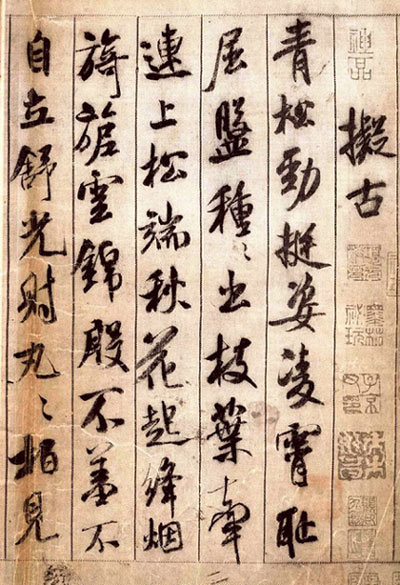 神品
擬古
青松勁挺姿凌霄恥
屈盤種〻出枝葉牽
連上松端秋花起絳烟
旖旎雲錦殷不羞不
自立舒光射丸〻柏見